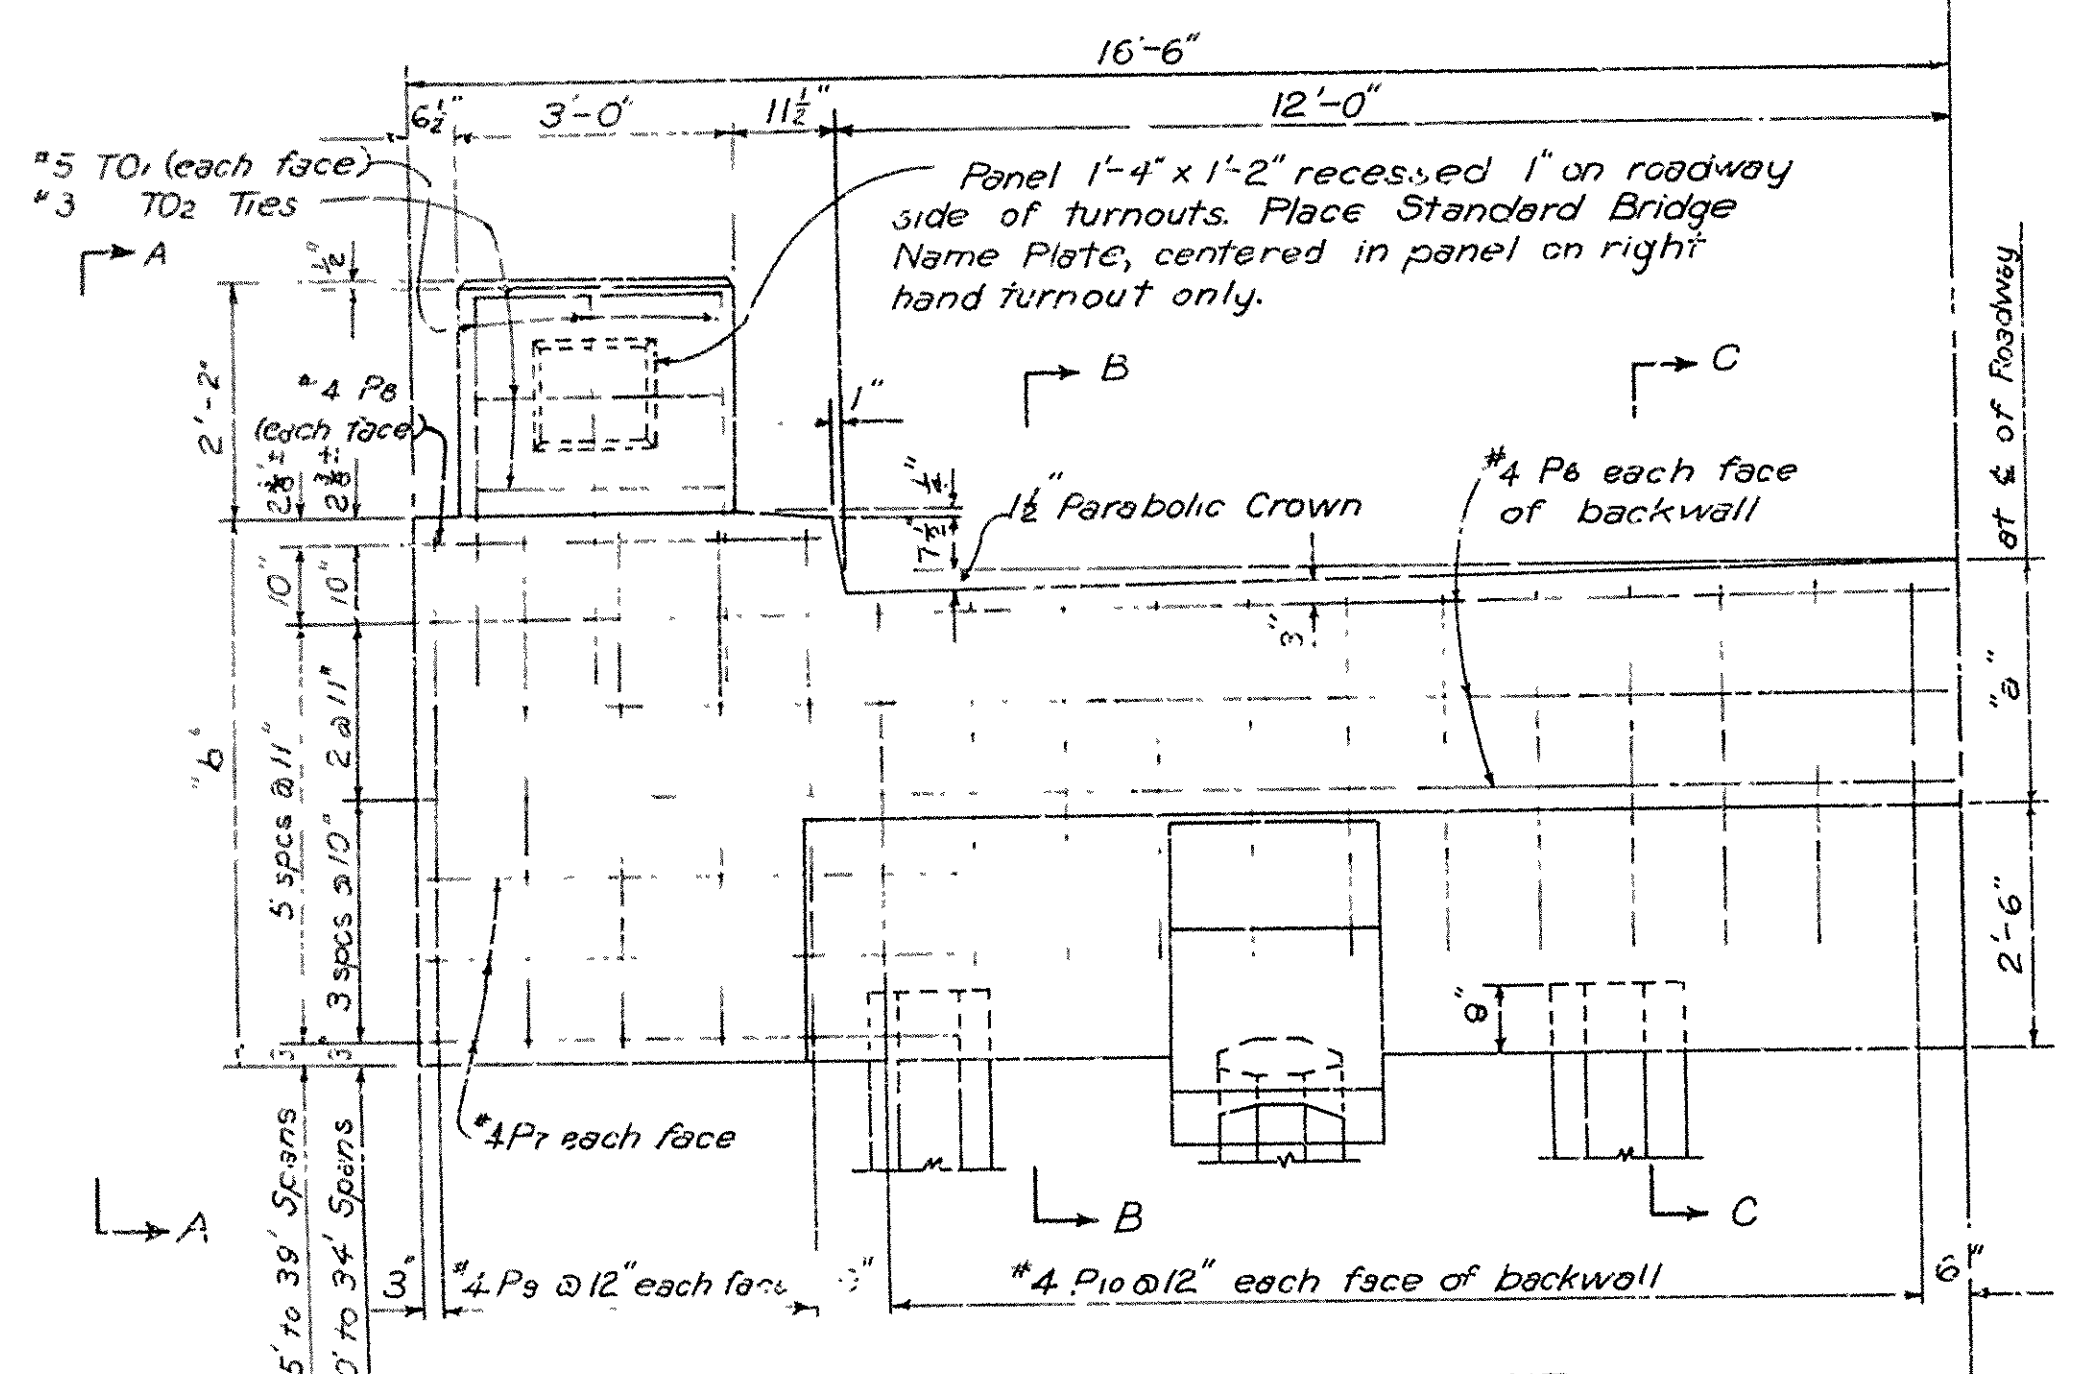 16'-6"
6½" 3'-0" 11½" 12'-0"
#5 TO1 (each face)
#3 TO2 Ties
Panel 1'-4" x 1'-2" recessed 1" on roadway
side of turnouts. Place Standard Bridge
Name Plate, centered in panel on right
hand turnout only.
A
½"
B
C
at ℄ of Roadway
2'-2"
#4 P8
(each face)
1"
#4 P6 each face
of backwall
1½" Parabolic Crown
½"
7½"
10"
10"
3"
"a"
"b"
5 spcs @ 11"
2 @ 11"
3 spcs @ 10"
2'-6"
8"
3"
3"
#4 P7 each face
A
B
C
5' to 39' Spans
0' to 34' Spans
3" #4 P9 @ 12" each face
#4 P10 @ 12" each face of backwall
6"